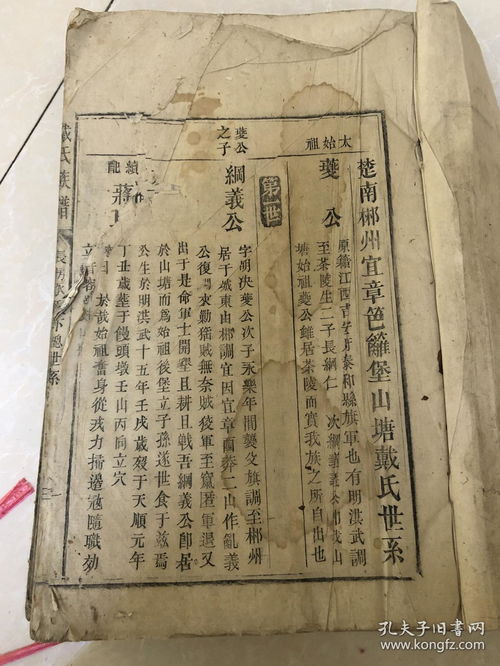 楚南郴州宜章笆籬堡山塘戴氏世系
太始祖
夔公
原籍江西吉安府泰和縣旗軍也有明洪武調
至茶陵生二子長綱仁次綱義義公即我山
塘始祖夔公雖居茶陵而實我族之所自出也
第一世
夔公之子
綱義公
字朝决夔公次子永樂年間襲父旗調至郴州
居于城東由郴調宜因宜章
莽二山作亂義
公復
來勦猺賊無奈賊後軍至竄匿軍退又
出于是命軍士開墾且耕且戰吾綱義公卽居
於山塘而爲始祖後堡立子孫遂世食于茲焉
公生於明洪武十五年壬戌歲殁于天順元年
丁丑歲塟于饅頭墩壬山丙向立穴
於哉始祖奮身從戎力擣邊寇隨職効
立
配
蔣
戴氏族譜
世系
孔夫子旧书网
www.kongfz.com